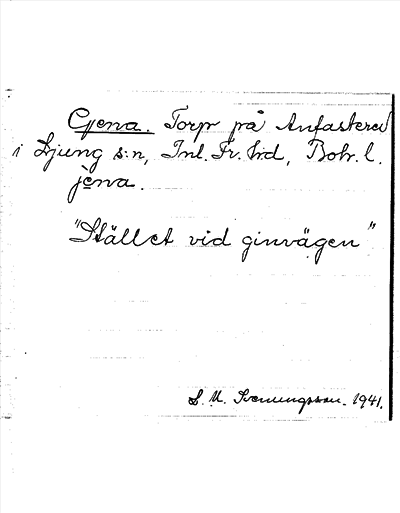 Gena. Torp på Anfasterød
i Ljung s:n, Inl. Fr. hd, Boh. l.
jèna.
"Stället vid ginvägen"
S. M. Svenungsson. 1941.